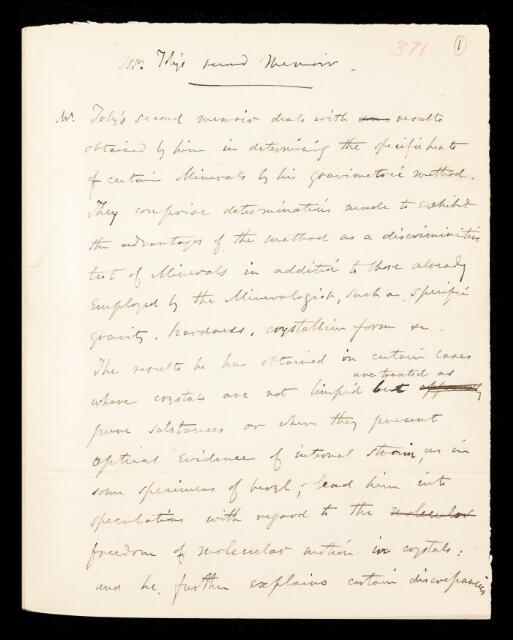 371 1
Mr. Joly's second Memoir.
Mr. Joly's second memoir deals with results
obtained by him in determining the specific heats
of certain Minerals by his gravimetric method.
They comprise determinations made to exhibit
the advantages of the method as a discriminative
test of Minerals in addition to those already
employed by the Mineralogist, such as specific
gravity, hardness, crystalline form &c.
The results he has obtained in certain cases
are treated as
where crystals are not limpid but
pure substances or where they present
optical evidence of internal strain, as in
some specimens of beryl, lead him into
speculations with regard to the molecular
freedom of molecular motion in crystals:
and he further explains certain discrepancies